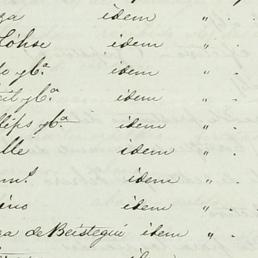 ga idem " "
Lohse idem " "
o y C.ª idem " "
eit y C.ª idem " "
llips y C.ª idem " "
lle idem " "
idem " "
ino idem " "
ga de Beistegui idem " "
idem